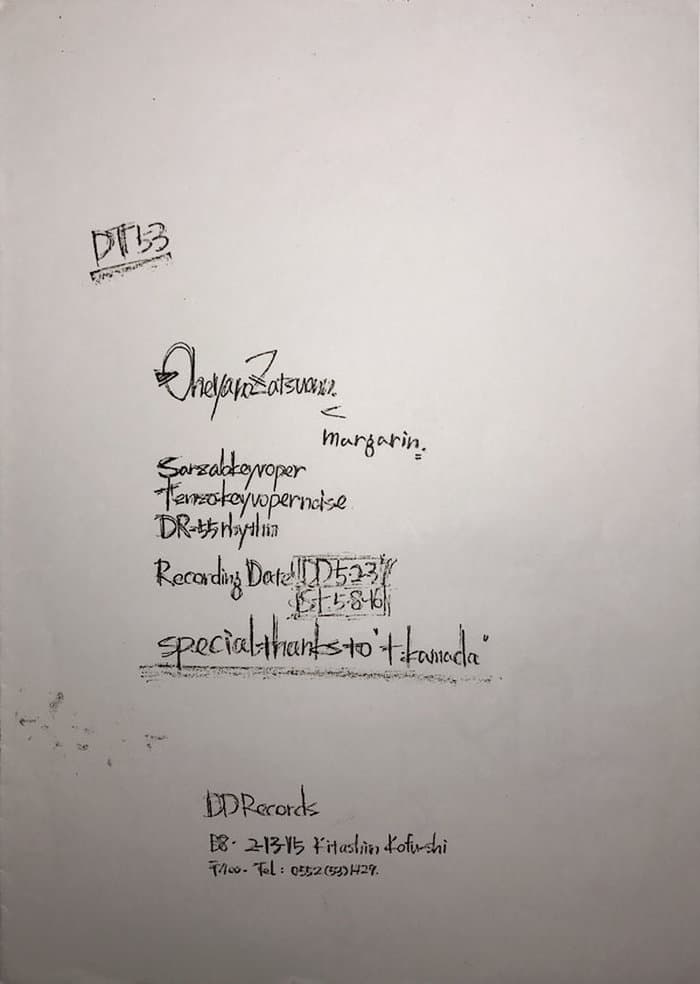 DT53
OneyanZatsuonn.
<
margarin.
Sarzabkeyvoper
Tenzokeyvopernoise
DR-55 rhythm
Recording Date "DD 5.23"
St. 5.8.16
special thanks to "t.kamada"
DD Records
2-13-15 Kitashin Kofu-shi
〒400- Tel: 0552(53)1429.